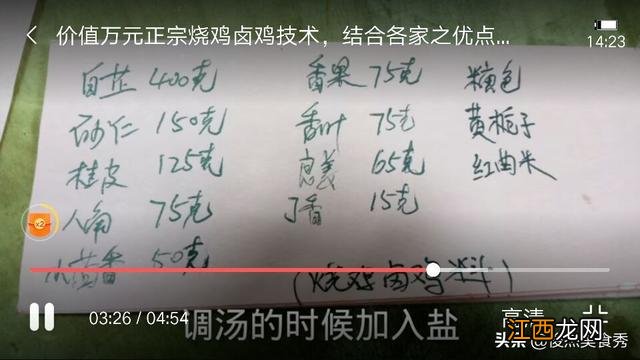 价值万元正宗烧鸡卤鸡技术，结合各家之优点...
14:23
白芷 400克 香果 75克 糖色
砂仁 150克 香叶 75克 黄栀子
桂皮 125克 65克 红曲米
八角 75克 丁香 15克
小茴香 50克
(烧鸡卤鸡料)
x2
03:26 / 04:54
高清
调汤的时候加入盐
头条 @俊杰美食秀
江西龙网